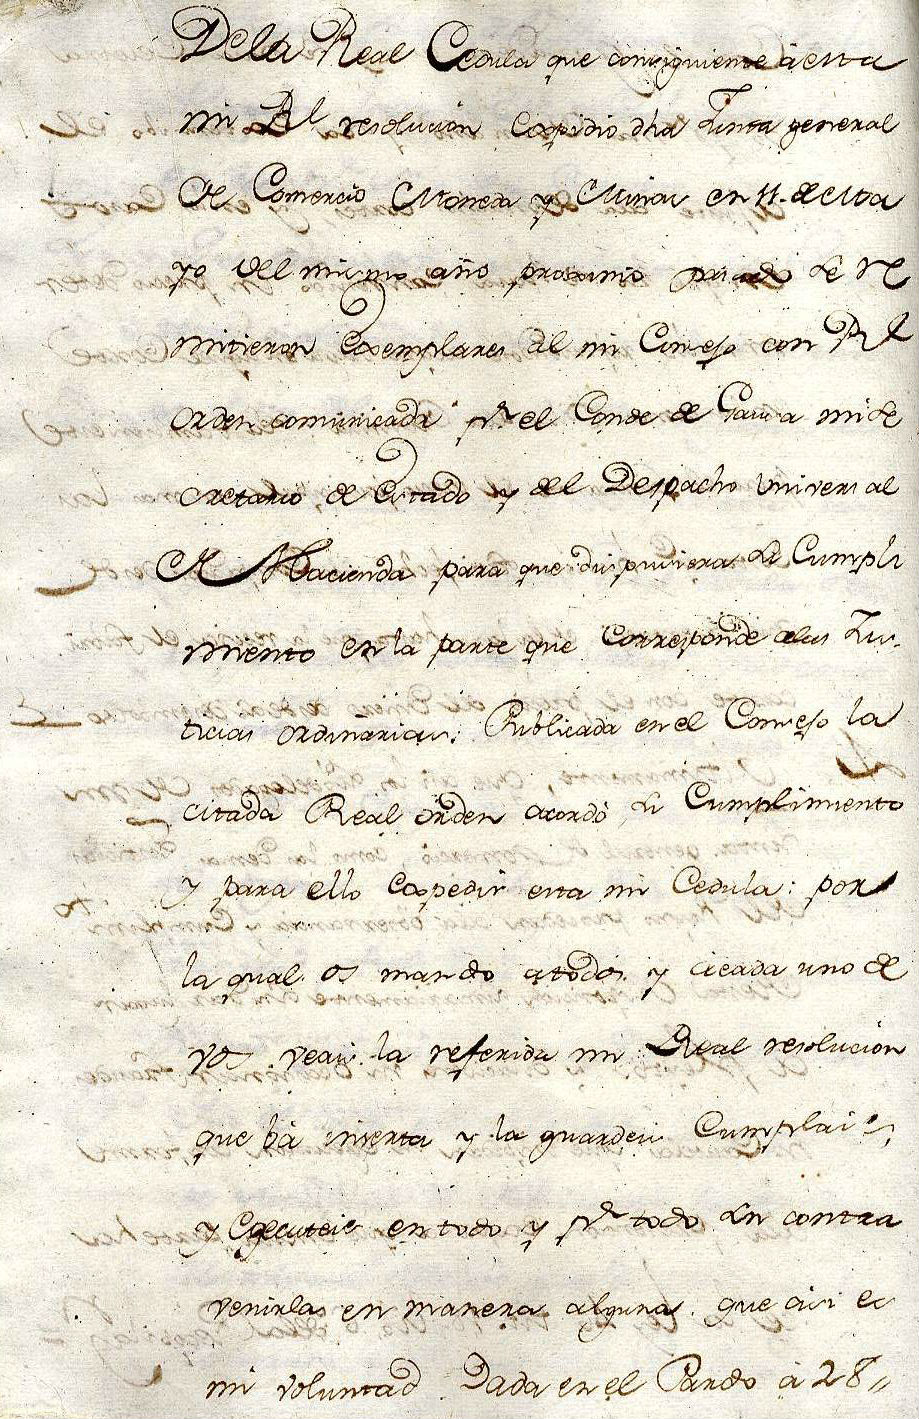 Dela Real Cedula que consiguiente á esta
mi Rl resolucion expidio dha Junta general
de Comercio Moneda y Minas en 11. de Ma
yo del mismo año proximo pasado se re
mitieron exemplares al mi Consejo con Rl
orden comunicada pr. el Conde de Gausa mi Se
cretario de Estado y del Despacho Universal
de Hacienda para que dispusiera su Cumpli
miento en la parte que corresponde alas Jus-
ticias ordinarias. Publicada en el Consejo la
citada Real orden acordó su Cumplimiento
y para ello expedir esta mi Cedula: por
la qual os mando atodos y acada uno de
vos veais la referida mi Real resolucion
que bá inserta y la guardeis Cumplais,
y Executeis en todo y pr todo sin contra
venirla en manera alguna que asi es
mi voluntad Dada en el Pardo á 28,,